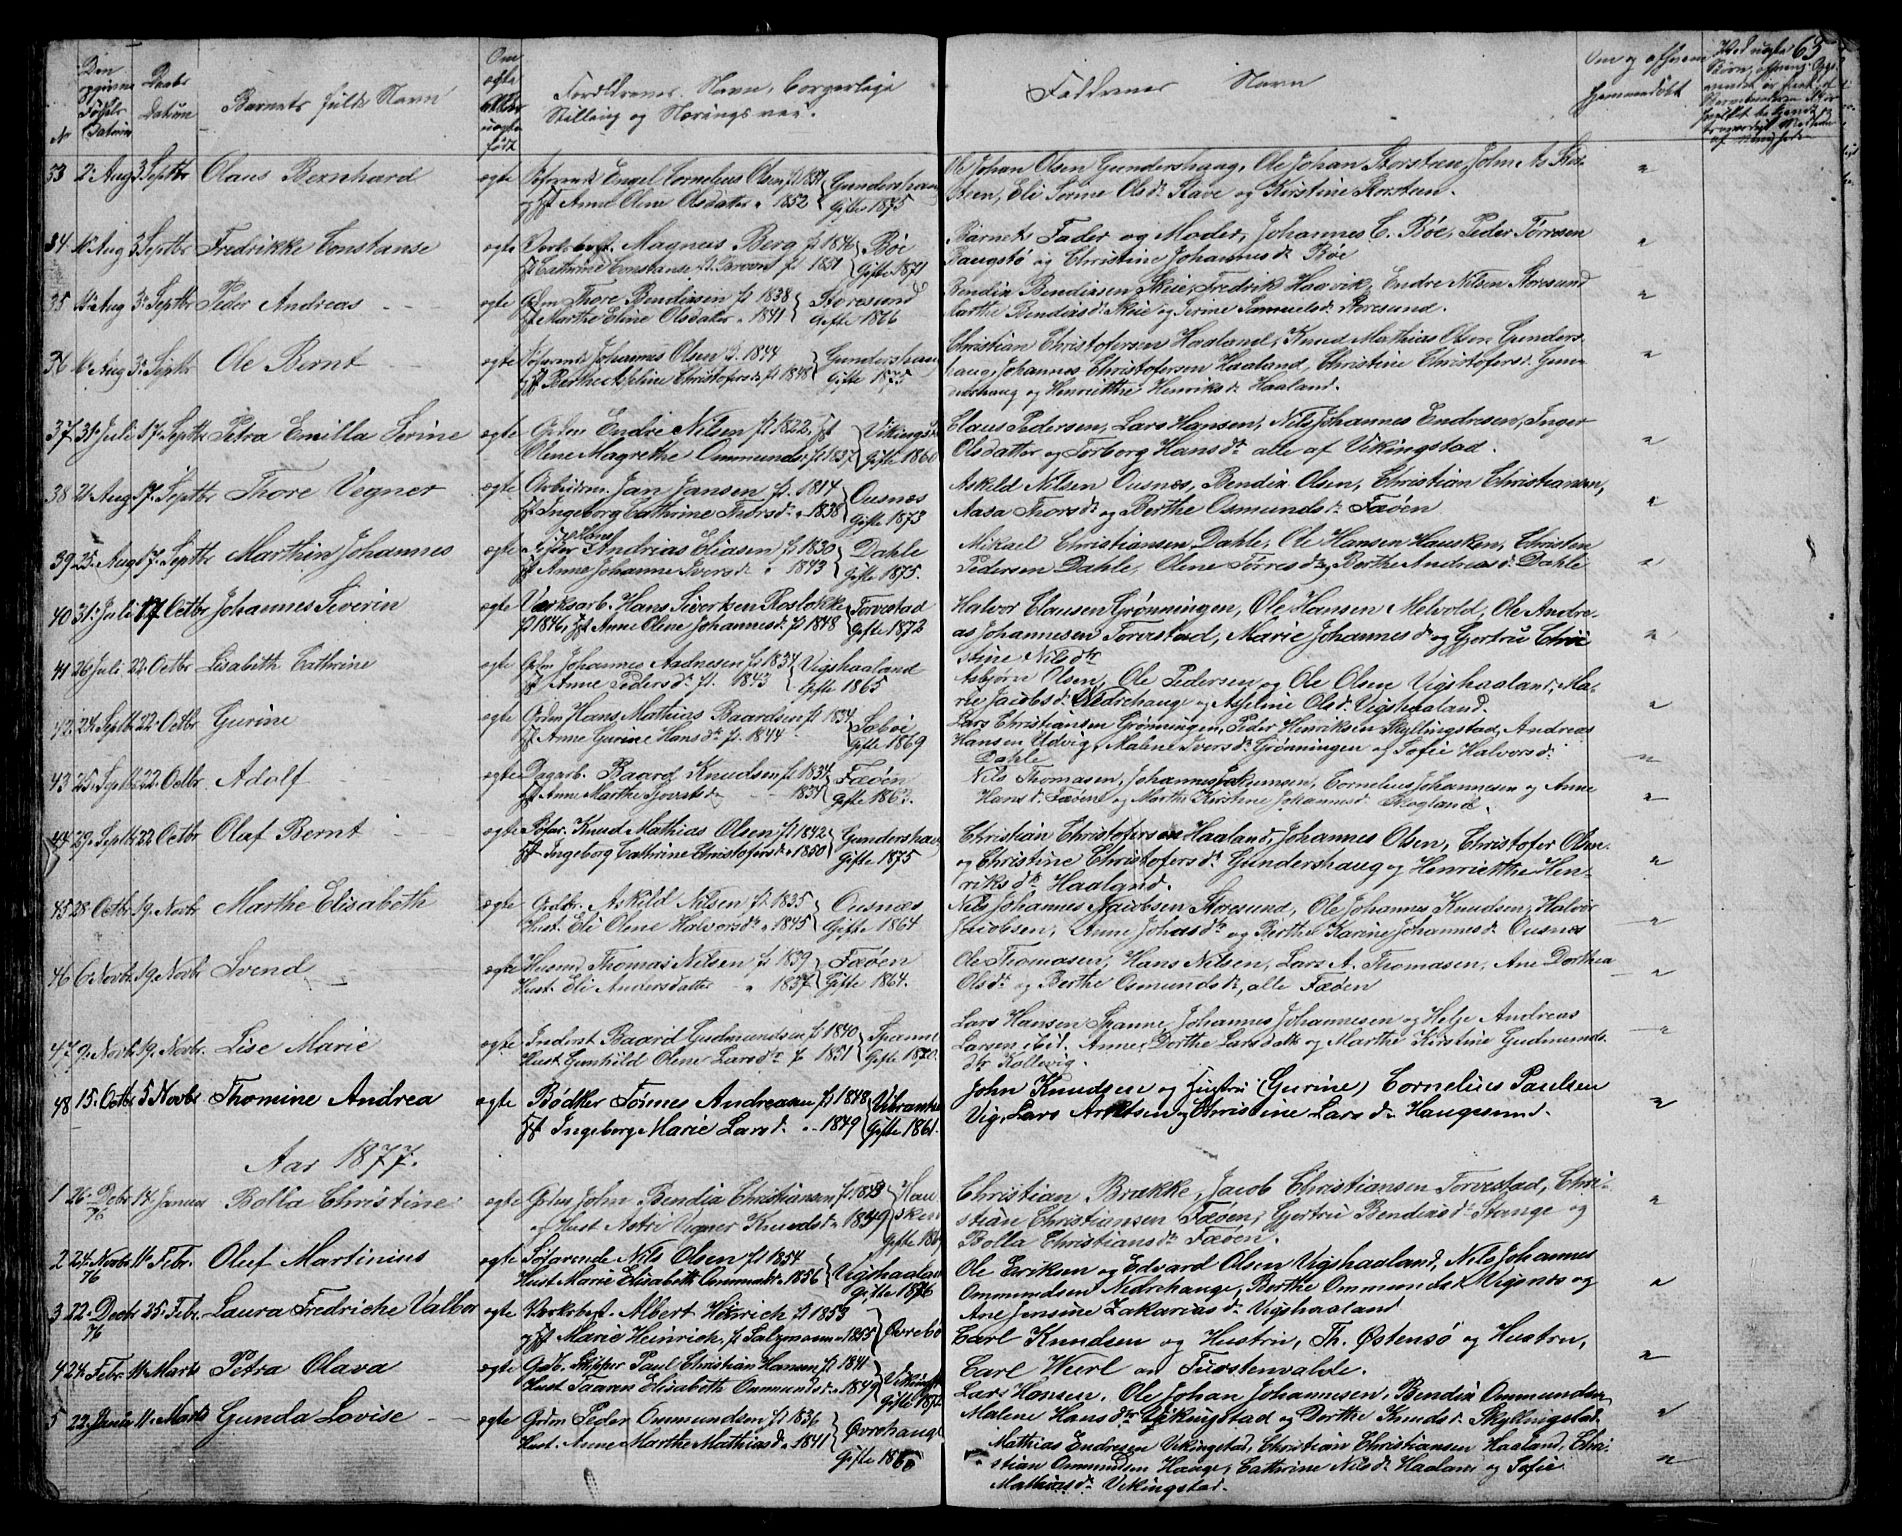 63
No
Den opgivne Fødsels Datum
Daabs Datum
Barnets fulde Navn
Om ægte eller uægte født
Forældrenes Navn, borgerlige
Stilling og Næringsvei.
Faddernes Navn
Om og af hvem
hjemmedøbt
33 2. Aug 3 Septbr Olaus Bernhard ægte Søfarende Engel Cornelius Olsen f. 1851 Gundershaug
Anne Oline Olsdatter " 1852 Gifte 1875
Ole Johan Olsen Gundershaug, Ole Johan Storsteen, John A.
Eli Serine Olsdr Rave og Kirstine Storsteen.
34 Aug 3 Septbr Fredrikke Constanse ægte Magnus Berg f. 1846 Bøe
Cathrine Constanse f. 1851 Gifte 1871
Barnets Fader og Moder, Johannes C. Bøe, Peder Tørresen
Baugstø og Christine Johannesdr Bøe
35 Aug 3 Septbr Peder Andreas ægte Gdm Thore Bendixsen f. 1838 Storesund
Marthe Eline Olsdatter " 1841 Gifte 1866
Bendix Bendixsen Skeie, Fredrik Haavik, Endre Nilsen Storesund
Marthe Bendixsdr Skeie og Serine Samuelsdr Storesund.
36 Aug 3 Septbr Ole Bernt ægte Søfarende Johannes Olsen f. 1844 Gundershaug
Berthe Axeline Christofersdr f. 1848 Gifte 1873
Christian Christofersen Haaland, Knud Mathias Olsen Gunders-
haug, Johannes Christofersen Haaland, Christine Christofersdr Gun-
dershaug og Henriette Henriksdr Haaland.
37 31 Juli 17 Septbr Petra Emilla Serine ægte Gdm Endre Nilsen f. 1822 Vikingst
Oline Magrethe Ommundsdr f. 1837 Gifte 1860
Claus Pedersen, Lars Hansen, Nils Johannes Endresen, Inger
Olsdatter og Torborg Hansdr alle af Vikingstad.
38 21 Aug 17 Septbr Thore Vegner ægte Arbeidsm. Jan Jansen f. 1814 Ousnæs
Ingeborg Cathrine Thorsdr " 1838 Gifte 1873
Askild Nilsen Ousnæs, Bendix Olsen, Christian Christiansen,
Aasa Thorsdr og Berthe Osmundsdr Fæøen
39 25. Aug 17. Septbr Marthin Johannes ægte Hans Andreas Eliasen f. 1830 Dahle
Anne Johanne Iversdr " 1843 Gifte 1875.
Mikael Christiansen Dahle, Ole Hansen Hausken, Christen
Pedersen Dahle, Olene Torresdr og Berthe Andreasdr Dahle
40 31. Juli 17 Octbr Johannes Siverin ægte Værksarb. Hans Sivertsen Rosløkke Torvestad
f. 1846, Anne Oline Johannesdr f. 1848 Gifte 1872
Halvor Clausen Grønningen, Ole Hansen Melvold, Ole Andre-
as Johannesen Torvestad, Marie Johannesdr og Gjertru Chri-
stine Nilsdr
41 26 Juli 22 Octbr Lisabeth Cathrine ægte Gdm Johannes Aadnesen f. 1834 Vigshaaland
Anne Pedersdr f. 1843 Gifte 1865
Asbjørn Olsen, Ole Pedersen og Ole Olsen Vigshaaland, Ma-
rie Jacobsdr Nedrehauge og Axeline Olsdr Vigshaaland.
42 24 Septbr 22 Octbr Gurine ægte Gdm Hans Mathias Baardsen f. 1834 Sæbøe
Anne Gurine Hansdr f. 1844 Gifte 1869
Lars Christiansen Grønningen, Peder Henriksen Skyllingstad, Andreas
Hansen Udvig, Malene Iversdr Grønningen og Sofie Halvorsdr
Dahle
43 25 Septbr 22 Octbr Adolf ægte Dagarb. Baard Knudsen f. 1834 Fæøen
Anne Marthe Sjovatsdr 1834 Gifte 1862.
Nils Thomasen, Johannes, Cornelius Johannesen og Anne
Hansdr Fæøen og Marthe Kirstine Johannesdr Skogland.
44 29 Septbr 22 Octbr Oluf Bernt ægte Søfar. Knud Mathias Olsen f. 1842 Gundershaug
Ingeborg Cathrine Christofersdr " 1850 Gifte 1875
Christian Christofersen Haaland, Johannes Olsen, Christofer Olsen
og Christine Christofersdr Gundershaug og Henriette Hen-
riksdr Haaland.
45 28 Octbr 19. Novbr Marthe Elisabeth ægte Askild Nilsen f. 1835 Ousnæs
Hust. Eli Oline Halvorsdr " 1845 Gifte 1864
Nils Johannes Jacobsen Storesund, Ole Johannes Knudsen, Halvor
Jacobsen, Anne Johasdr og Berthe Karine Johannesdr Ousnæs
46 6 Novbr 19. Novbr Svend ægte Husmd Thomas Nilsen f. 1839 Fæøen
Hust. Eli Andersdatter " 1837 Gifte 1864.
Ole Thomasen, Hans Nilsen, Lars A. Thomasen, Ane Dorthea
Olsdr og Berthe Osmundsdr, alle Fæøen
47 9. Novbr 19. Novbr. Lise Marie ægte Inderst Baard Gudmundsen f. 1840 Spanne
Hust Gunhild Oline Larsdr f. 1851 Gifte 1870.
Lars Hansen Spanne, Johannes Johannesen og Helge Andreas
Larsen ibid. Anne Dorthe Larsdatter og Marthe Kirstine Gudmunds-
dr Kollevig.
48 15. Octbr 5 Novbr Thomine Andrea ægte Bødker Tønnes Andreasen f. 1848 Vibrandsø
Ingeborg Marie Larsdr " 1849 Gifte 1861.
John Knudsen og Hustru (Gurine) Cornelius Paulsen
Vig, Lars Arntsen og Christine Larsdr Haugesund.
Aar 1877.
1 26. Debr 76 14 Januar Bolla Christine ægte Gdm John Bendix Christiansen f. 1853 Hausken
Hust Astri Vigner Knudsdr " 1849 Gifte
Christian Brække, Jacob Christiansen Torvestad, Chri-
stian Christiansen Fæøen, Gjertru Bendixsdr Stange og
Bolla Christiansdr Fæøen.
2 24 Novbr 76 11 Febr. Oluf Martinius ægte Søfarende Nils Olsen f. 1854 Vigshaaland
Hust Marie Elisabeth Ommundsdr " 1856 Gifte 1876
Ole Eriksen og Edvard Olsen Vigshaaland, Nils Johannes
Ommundsen Nedrehauge, Berthe Ommundsdr Vigsnæs og
Ane Jensine Zakariasdr Vigshaaland
3 22. Decbr 76 25 Febr. Laura Fredriche Valba ægte Værksbest. Albert Hinrich f. 1853 Øvrebø
Marie Heinrich, f. Salzmann " 1855
Carl Knudsen og Hustru, Th. Østensø og Hustru,
Carl Werl av Fürstenvalde.
4 24 Febr. 11 Marts Petra Olava ægte Gab. Skipper Paul Christian Hansen f. 1841 Vikingst
Hust Taaren Elisabeth Ommundsdr " 1849 Gifte 1872
Lars Hansen, Ole Johan Johannesen, Bendix Ommundsen
Malene Hansdr Vikingstad og Dorthe Knudsdr Skyllingstad.
5 22 Januar 11. Marts Gunda Lovise ægte Gdm Peder Ommundsen f. 1836 Øvrehauge
Hust. Anne Marthe Mathiasdr " 1841 Gifte
Mathias Endresen Vikingstad, Christian Christiansen Haaland, Chri-
stian Ommundsen Hauge, Cathrine Nilsdr Haaland og Sofie
Mathiasdr Vikingstad.